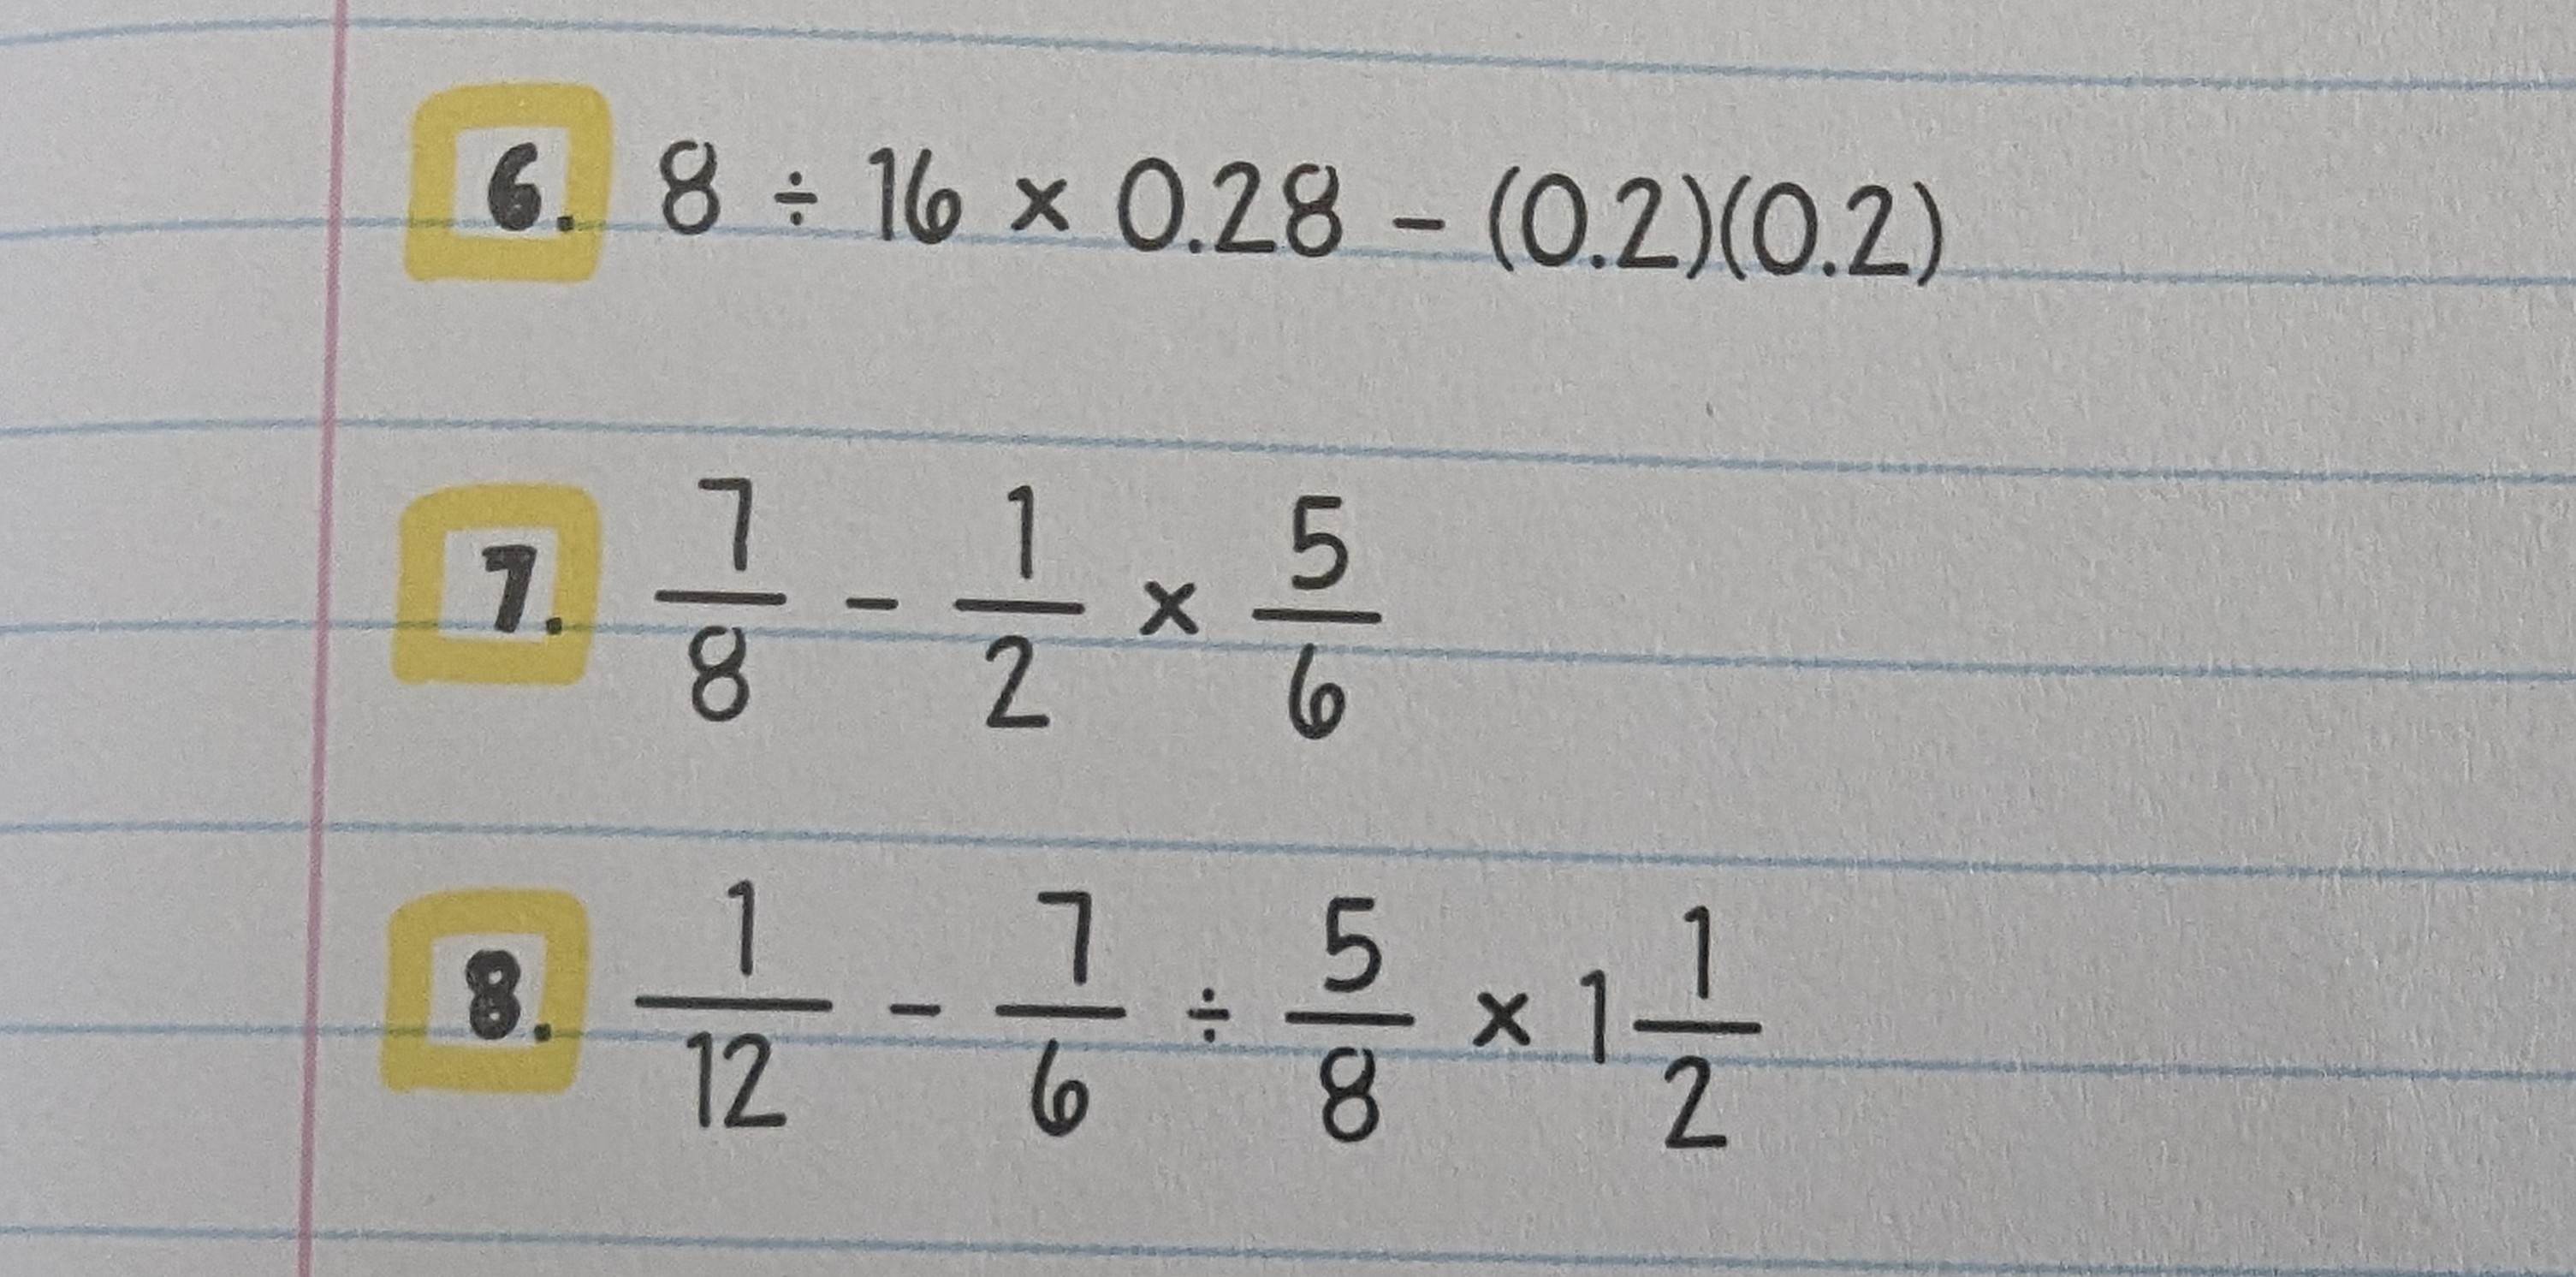 6. 8 ÷ 16 × 0.28 - (0.2)(0.2)
7. 7/8 - 1/2 × 5/6
8. 1/12 - 7/6 ÷ 5/8 × 1 1/2